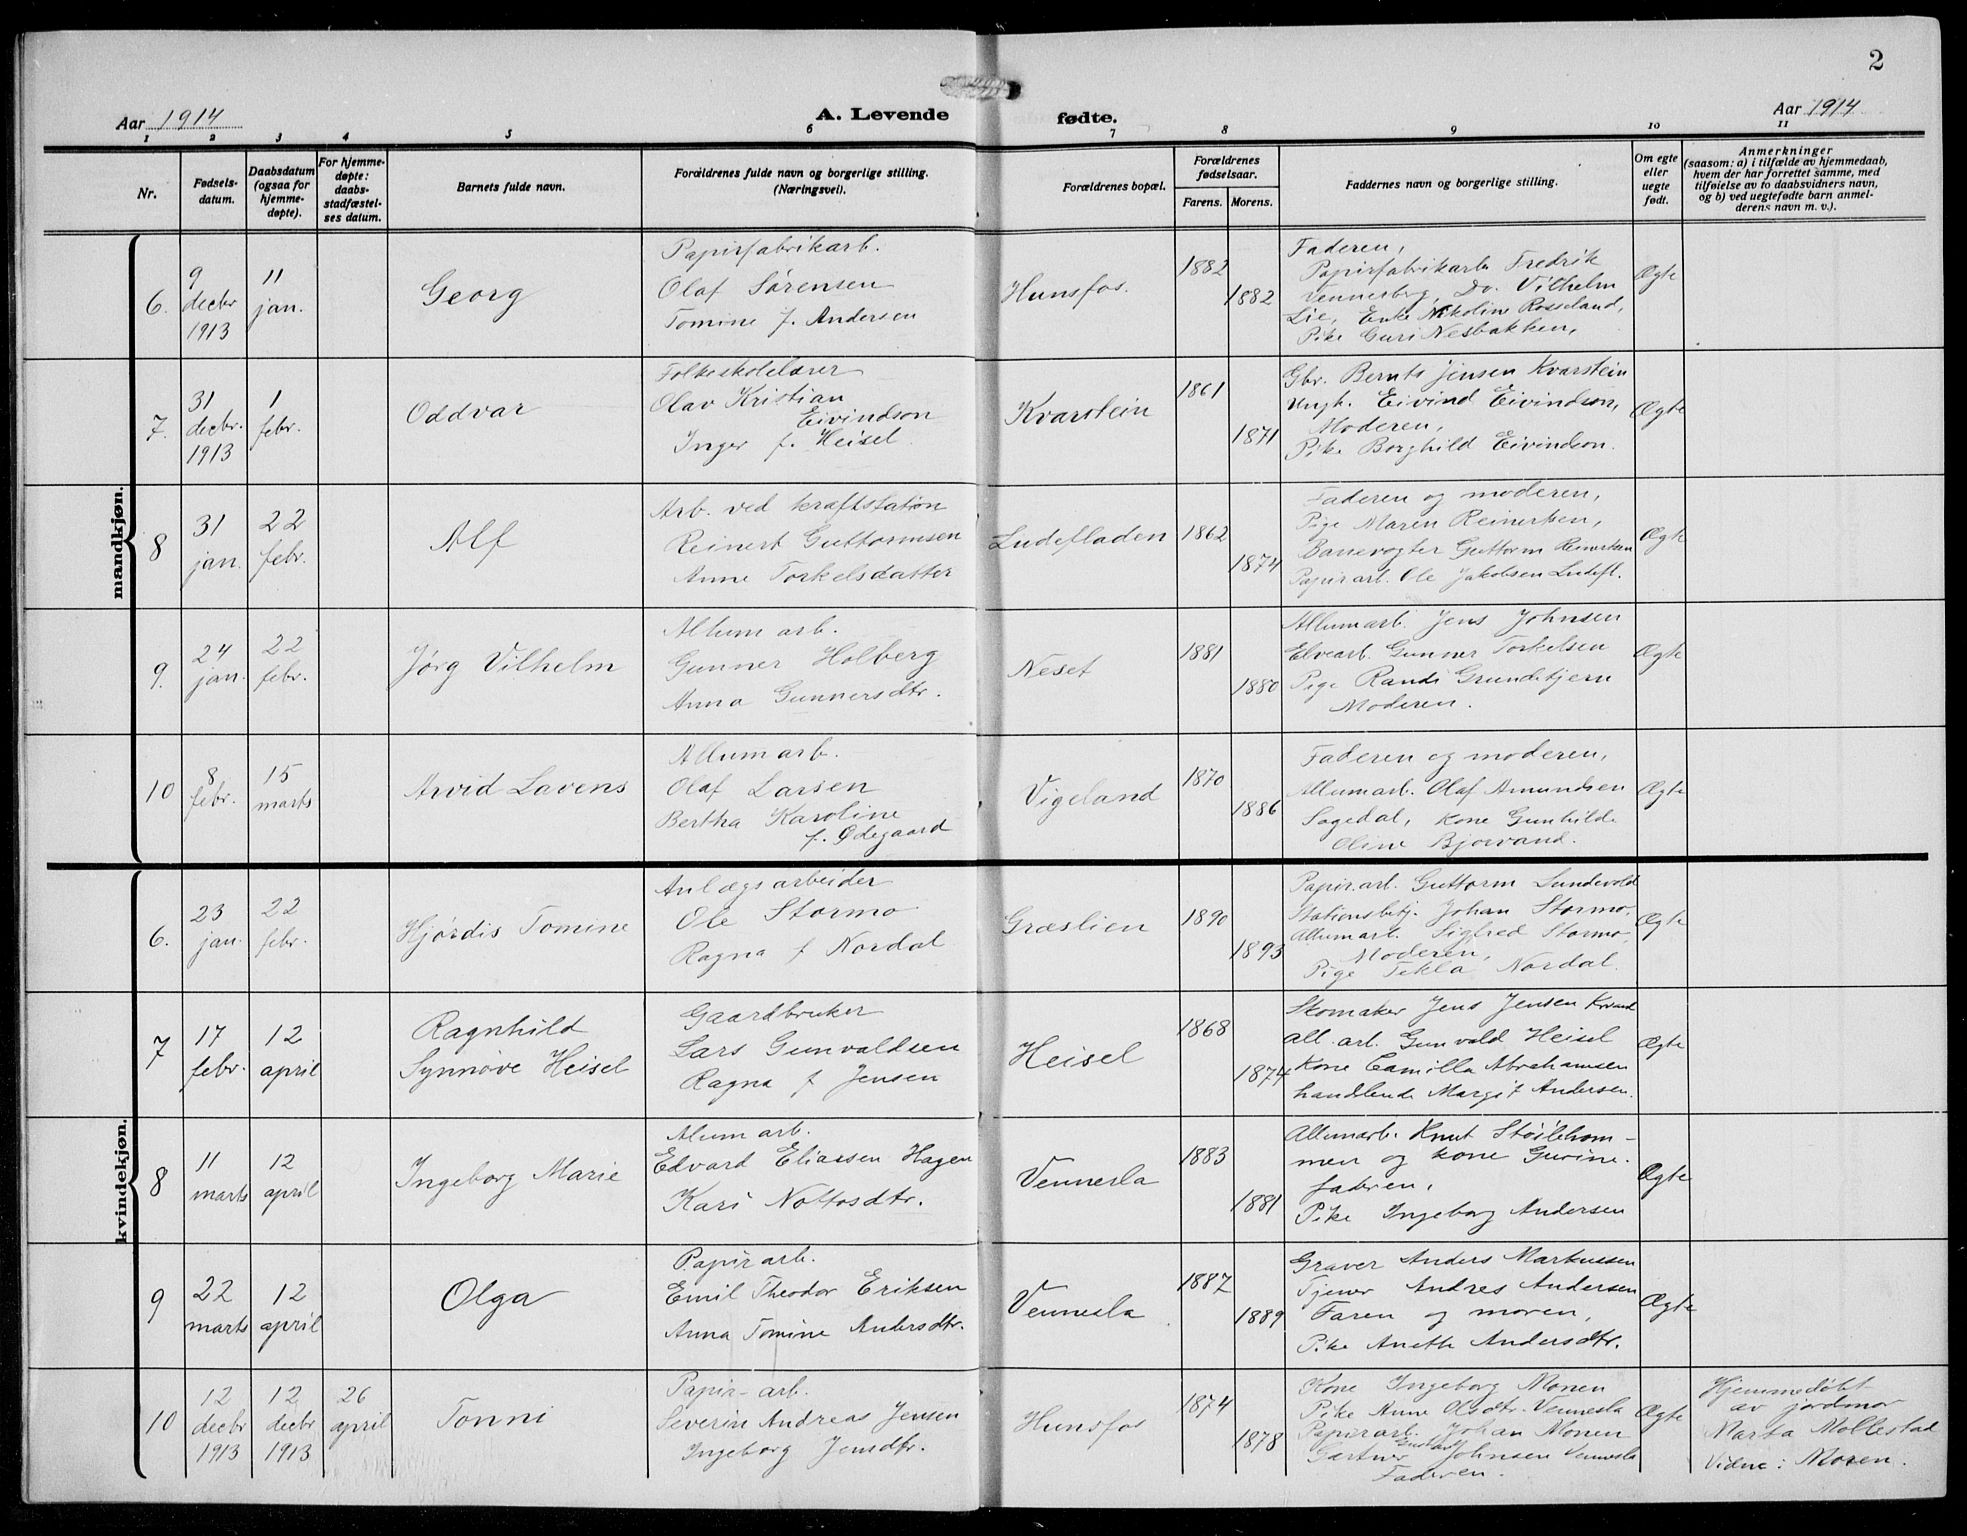 2
Aar 1914
A. Levende
fødte.
Aar 1914
1 2 3 4 5 6 7 8 9 10 11
Nr.
Fødsels-
datum.
Daabsdatum
(ogsaa for
hjemme-
døpte).
For hjemme-
døpte:
daabs-
stadfæstel-
ses datum.
Barnets fulde navn.
Forældrenes fulde navn og borgerlige stilling.
(Næringsvei).
Forældrenes bopæl.
Forældrenes
fødselsaar.
Farens. Morens.
Faddernes navn og borgerlige stilling.
Om egte
eller
uegte
født.
Anmerkninger
(saasom: a) i tilfælde av hjemmedaab,
hvem der har forrettet samme, med
tilføielse av to daabsvidners navn,
og b) ved uegtefødte barn anmel-
derens navn m. v.).
mandkjøn.
6.
9
decbr
1913
11
jan.
Georg
Papirfabrikarb.
Olaf Sørensen
Tomine f. Andersen
Hunsfos.
1882
1882
Faderen,
Papirfabrikarb. Fredrik
Vennesberg, Do. Vilhelm
Lie, Enke Nikoline Rosseland,
Pike Guri Nesbakken,
Ægte
7.
31
decbr.
1913
1
febr.
Oddvar
Folkeskolelærer
Olav Kristian
Eivindson
Inger f. Heisel.
Kvarstein
1861
1871
Gbr. Bernt Jensen Kvarstein
Ungk. Eivind Eivindson,
Moderen,
Pike Borghild Eivindson.
Ægte
8
31
jan.
22
febr.
Alf
Arb. ved kraftstation
Reinert Guttormsen
Anne Torkelsdatter
Ludefladen
1862
1874
Faderen og moderen,
Pige Maren Reinertsen,
Banevogter Guttorm Reinertsen
Papirarb. Ole Jakobsen Ludefl.
Ægte
9.
24
jan.
22
febr.
Jørg Vilhelm
Allum arb.
Gunner Holberg
Anna Gunnersdtr.
Neset
1881
1880
Allumarb. Jens Johnsen
Elvearb. Gunner Torkelsen
Pige Randi Grundetjern
Moderen.
Ægte
10
8
febr.
15
marts
Arvid Lavens
Allumarb.
Olaf Larsen
Bertha Karoline
f. Ødegaard
Vigeland
1870
1886
Faderen og moderen,
Allumarb. Olaf Amundsen
Sagedal, kone Gunhilde
Oline Bjorvand.
Ægte
kvindekjøn.
6.
23
jan.
22
febr.
Hjørdis Tomine
Anlægsarbeider
Ole Stormo
Ragna f Nordal
Græslien
1890
1893
Papirarb. Guttorm Lundevold
Stationsbetj. Johan Stormo,
Allumarb. Sigfred Stormo,
Moderen,
Pige Tekla Nordal.
Ægte
7
17
febr.
12
april
Ragnhild
Synnøve Heisel
Gaardbruker
Lars Gunvaldsen
Ragna f Jensen
Heisel
1868
1874
Skomaker Jens Jensen
All. arb. Gunvald Heisel
Kone Camilla Abrahamsen
handlende Margit Andersen.
Ægte
8
11
marts
12
april
Ingeborg Marie
Alum arb.
Edvard Eliassen Hagen
Kari Nottosdtr.
Vennesla
1883
1881
Allumarb. Knut Støilehom-
men og kone Gurine.
faderen,
Pike Ingeborg Andersen
Ægte
9
22
marts
12
april
Olga
Papirarb.
Emil Theodor Eriksen
Anna Tomine Andersdtr.
Vennesla
1887
1889
Graver Anders Markussen
Tjener Andres Andersen
Faren og moren,
Pike Aneth Andersdtr.
Ægte
10
12
decbr
1913
12
decbr
1913
26
april
Tonni
Papir-arb.
Severin Andreas Jensen
Ingeborg Jensdtr.
Hunsfos
1874
1878
Kone Ingeborg Monen
Pike Anne Olsdtr. Vennesla
Papirarb. Johan Monen
Gartner Gustav Johnsen Vennesla
Faderen.
Ægte
Hjemmedøbt
av jordmor
Marta Mollestad
Vidne: Moren.